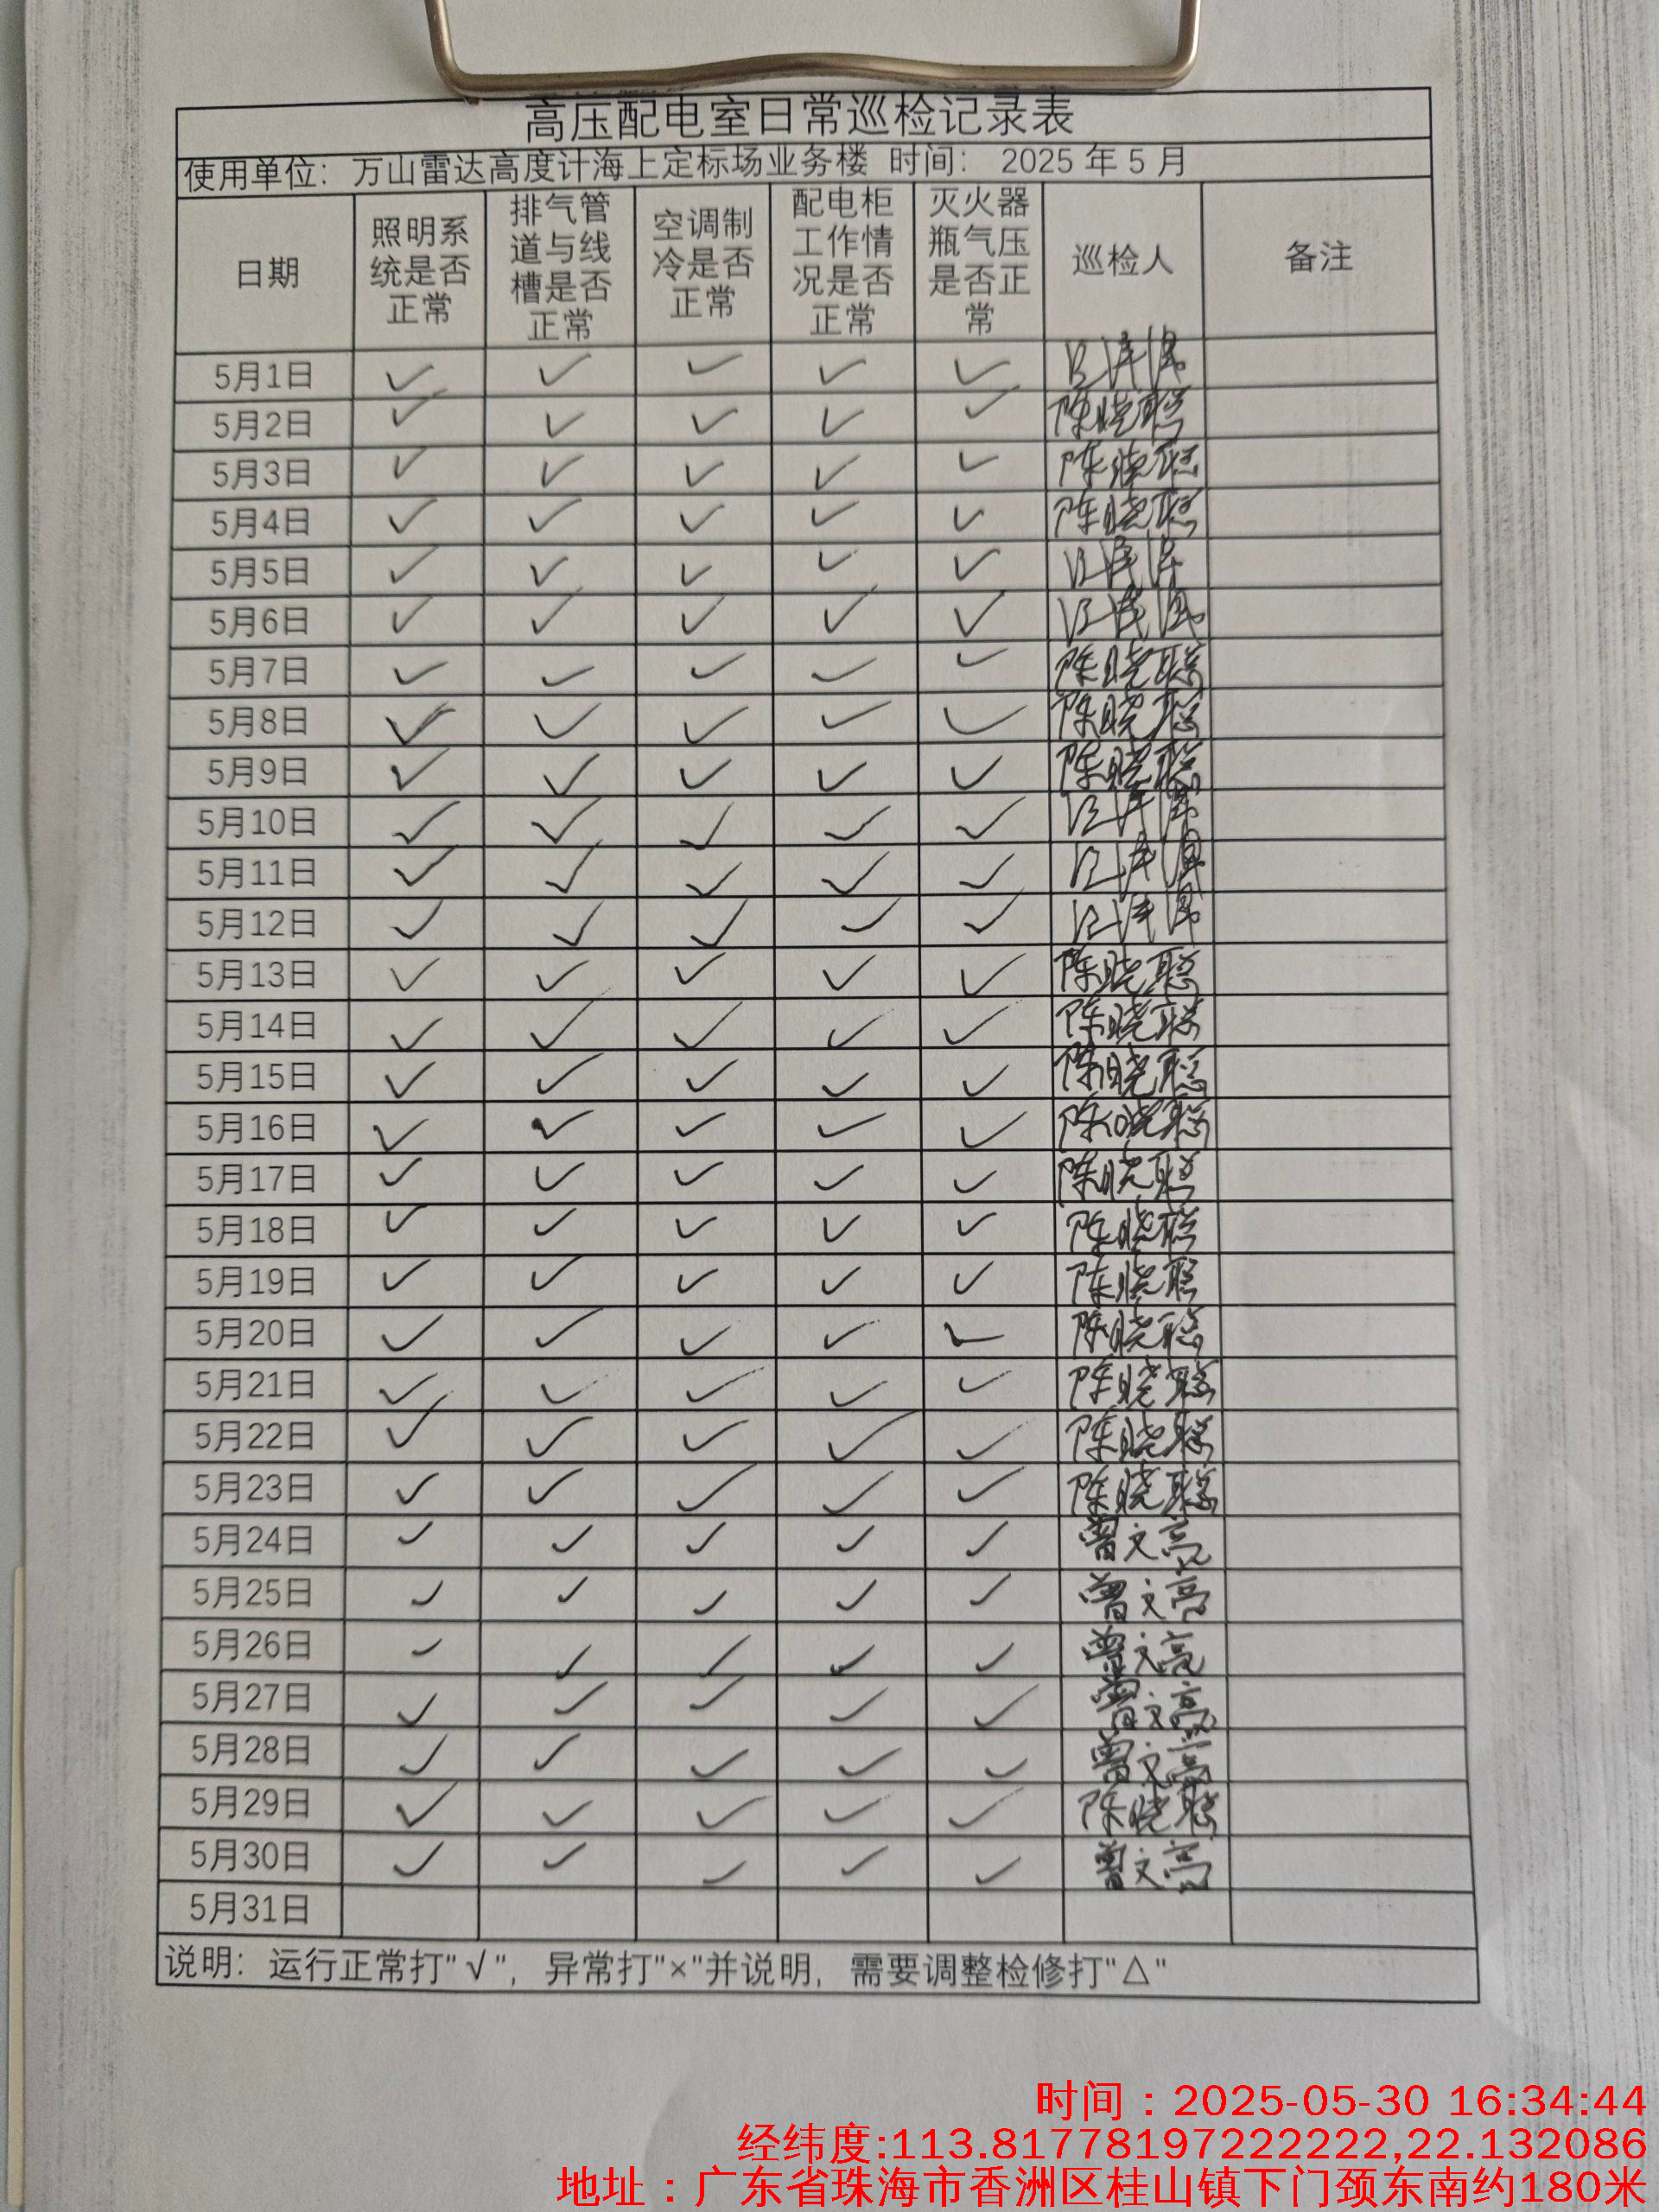 高压配电室日常巡检记录表
使用单位：万山雷达高度计海上定标场业务楼 时间： 2025 年 5 月
日期 照明系统是否正常 排气管道与线槽是否正常 空调制冷是否正常 配电柜工作情况是否正常 灭火器瓶气压是否正常 巡检人 备注
5月1日 ✓ ✓ ✓ ✓ ✓
5月2日 ✓ ✓ ✓ ✓ ✓ 陈晓聪
5月3日 ✓ ✓ ✓ ✓ ✓ 陈晓聪
5月4日 ✓ ✓ ✓ ✓ ✓ 陈晓聪
5月5日 ✓ ✓ ✓ ✓ ✓
5月6日 ✓ ✓ ✓ ✓ ✓
5月7日 ✓ ✓ ✓ ✓ ✓ 陈晓聪
5月8日 ✓ ✓ ✓ ✓ ✓ 陈晓聪
5月9日 ✓ ✓ ✓ ✓ ✓ 陈晓聪
5月10日 ✓ ✓ ✓ ✓ ✓
5月11日 ✓ ✓ ✓ ✓ ✓
5月12日 ✓ ✓ ✓ ✓ ✓
5月13日 ✓ ✓ ✓ ✓ ✓ 陈晓聪
5月14日 ✓ ✓ ✓ ✓ ✓ 陈晓聪
5月15日 ✓ ✓ ✓ ✓ ✓ 陈晓聪
5月16日 ✓ ✓ ✓ ✓ ✓ 陈晓聪
5月17日 ✓ ✓ ✓ ✓ ✓ 陈晓聪
5月18日 ✓ ✓ ✓ ✓ ✓ 陈晓聪
5月19日 ✓ ✓ ✓ ✓ ✓ 陈晓聪
5月20日 ✓ ✓ ✓ ✓ ✓ 陈晓聪
5月21日 ✓ ✓ ✓ ✓ ✓ 陈晓聪
5月22日 ✓ ✓ ✓ ✓ ✓ 陈晓聪
5月23日 ✓ ✓ ✓ ✓ ✓ 陈晓聪
5月24日 ✓ ✓ ✓ ✓ ✓ 曾文亮
5月25日 ✓ ✓ ✓ ✓ ✓ 曾文亮
5月26日 ✓ ✓ ✓ ✓ ✓ 曾文亮
5月27日 ✓ ✓ ✓ ✓ ✓ 曾文亮
5月28日 ✓ ✓ ✓ ✓ ✓ 曾文亮
5月29日 ✓ ✓ ✓ ✓ ✓ 陈晓聪
5月30日 ✓ ✓ ✓ ✓ ✓ 曾文亮
5月31日
说明：运行正常打"√"，异常打"×"并说明，需要调整检修打"△"
时间：2025-05-30 16:34:44
经纬度:113.81778197222222,22.132086
地址：广东省珠海市香洲区桂山镇下门颈东南约180米